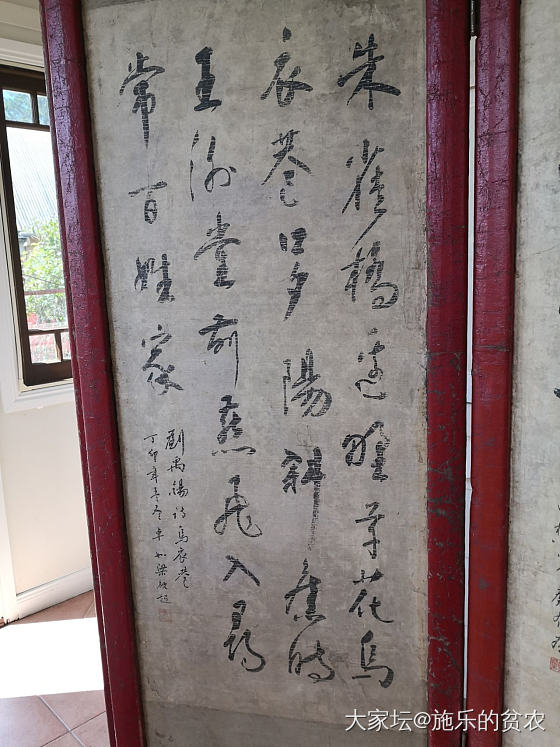 朱雀橋邊野草花烏
衣巷口夕陽斜舊時
王謝堂前燕飛入尋
常百姓家
劉禹錫詩烏衣巷
丁卯年孟冬卓如梁啟超
大家坛@施乐的贫农